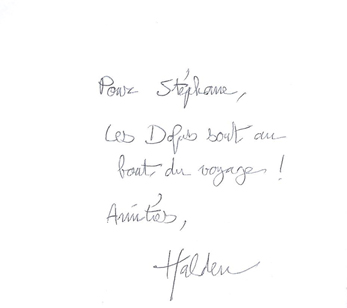 Pour Stéphane,
Les Défis sont au
bout du voyage !
Amitiés,
Halden